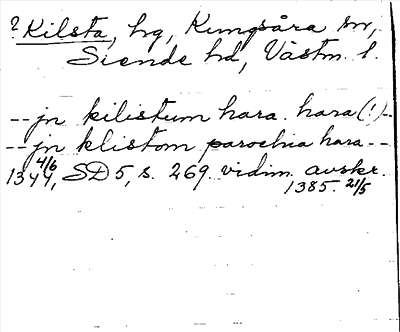 ? Kilsta, hg, Kungsåra sn,
Siende hd, Västm. l.
-- jn kilistum hara. hara (!) --
-- jn klistom parochia hara --
1344 4/6, SD 5, s. 269. vidim. avskr.
1385. 21/5